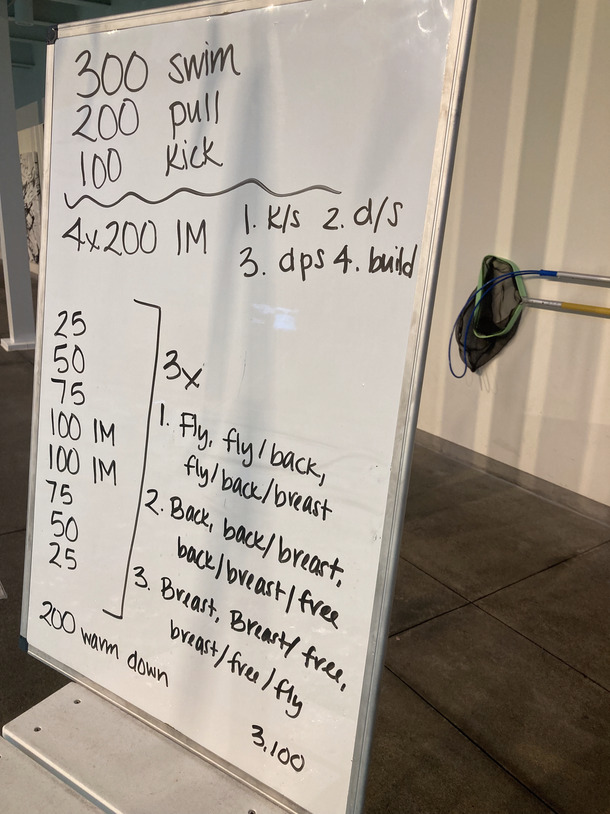 300 swim
200 pull
100 kick
4x200 IM
1. k/s 2. d/s
3. dps 4. build
25
50
75
100 IM
100 IM
75
50
25
3x
1. Fly, fly/back,
fly/back/breast
2. Back, back/breast,
back/breast/free
3. Breast, Breast/free,
breast/free/fly
200 warm down
3,100